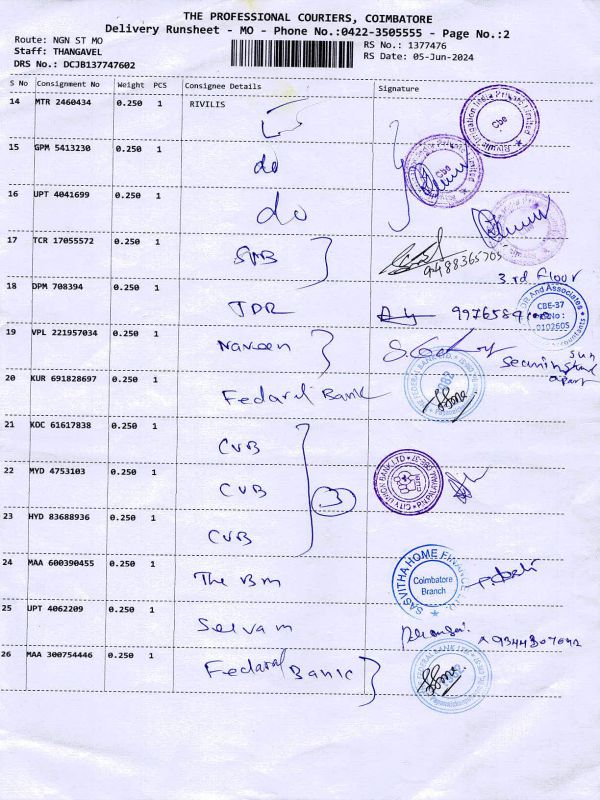 THE PROFESSIONAL COURIERS, COIMBATORE
Delivery Runsheet - MO - Phone No.:0422-3505555 - Page No.:2
Route: NGN ST MO
RS No.: 1377476
Staff: THANGAVEL
RS Date: 05-Jun-2024
DRS No.: DCJB137747602
S No Consignment No Weight PCS Consignee Details Signature
14 MTR 2460434 0.250 1 RIVILIS
Cbe
15 GPM 5413230 0.250 1 do
Cbe
16 UPT 4041699 0.250 1 do
17 TCR 17055572 0.250 1
3rd floor
18 DPM 708394 0.250 1 TDR
DR And Associates
CBE-37
19 VPL 221957034 0.250 1 Naveen
20 KUR 691828697 0.250 1 Federal Bank
21 KOC 61617838 0.250 1 CUB
22 MYD 4753103 0.250 1 CUB 3
CITY UNION BANK LTD
23 HYD 83688936 0.250 1 CUB
24 MAA 600390455 0.250 1 The Bm
SASVITHA HOME FINANCE
Coimbatore
Branch
25 UPT 4062209 0.250 1 Selvam
26 MAA 300754446 0.250 1 Federal Bank